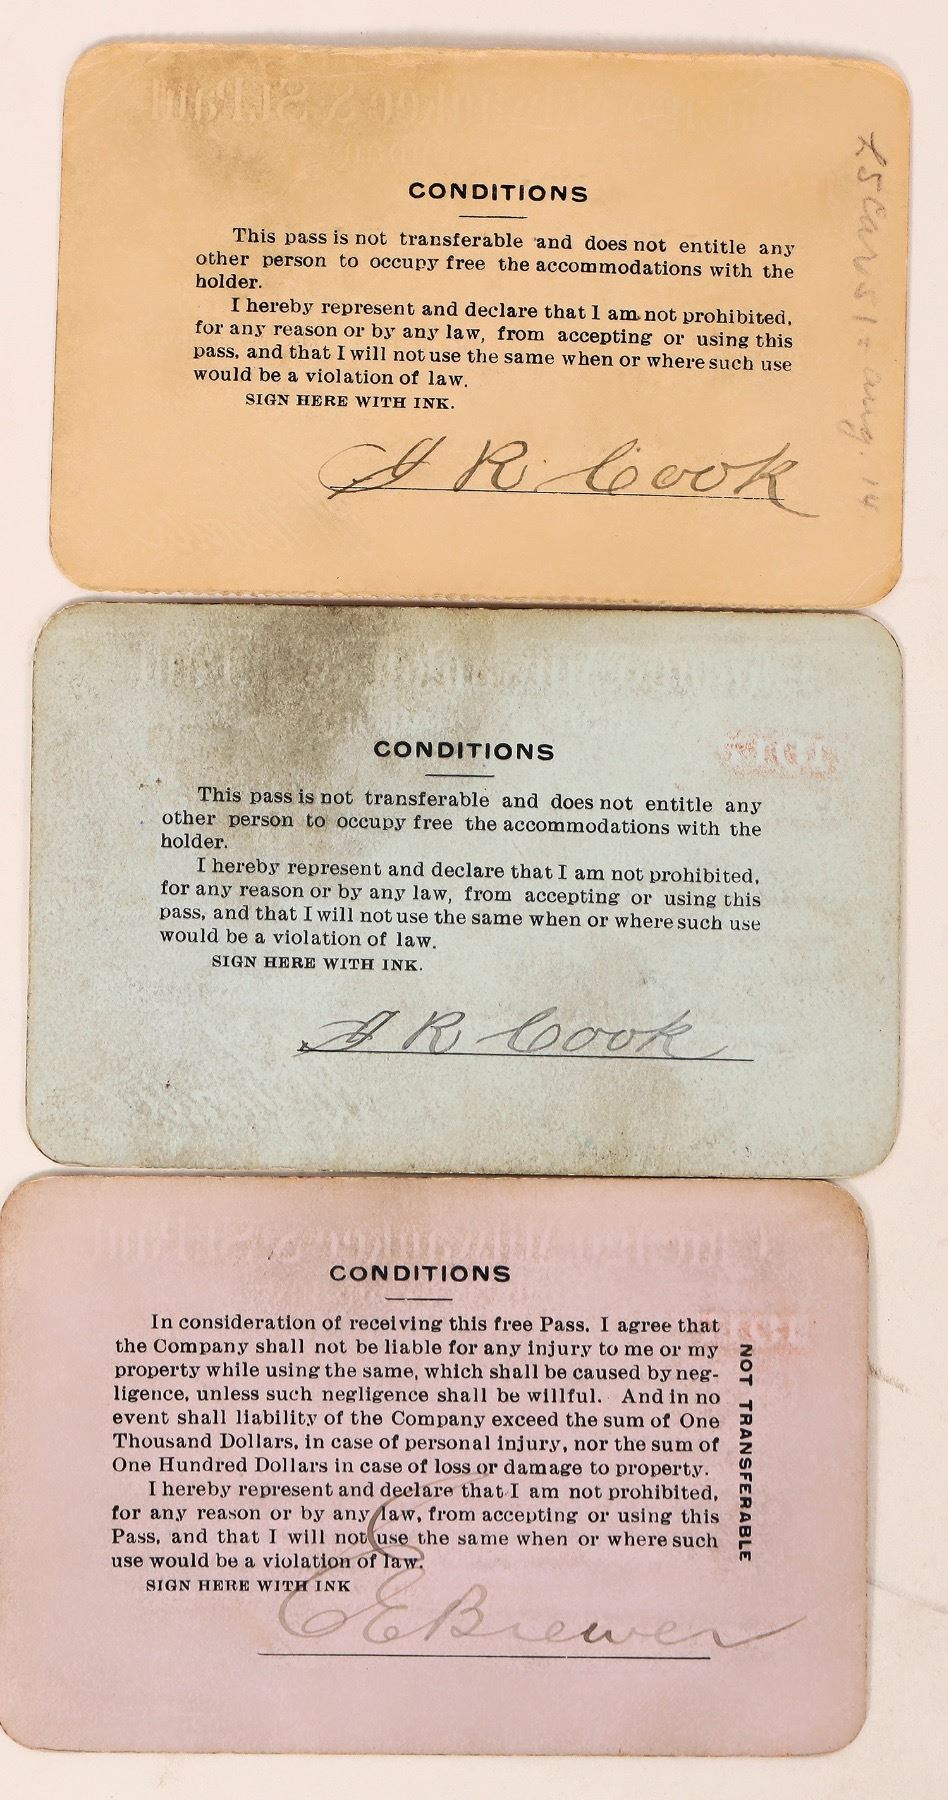 CONDITIONS
This pass is not transferable and does not entitle any
other person to occupy free the accommodations with the
holder.
I hereby represent and declare that I am not prohibited,
for any reason or by any law, from accepting or using this
pass, and that I will not use the same when or where such use
would be a violation of law.
SIGN HERE WITH INK.
J R Cook
CONDITIONS
This pass is not transferable and does not entitle any
other person to occupy free the accommodations with the
holder.
I hereby represent and declare that I am not prohibited,
for any reason or by any law, from accepting or using this
pass, and that I will not use the same when or where such use
would be a violation of law.
SIGN HERE WITH INK.
J R Cook
CONDITIONS
In consideration of receiving this free Pass, I agree that
the Company shall not be liable for any injury to me or my
property while using the same, which shall be caused by neg-
ligence, unless such negligence shall be willful. And in no
event shall liability of the Company exceed the sum of One
Thousand Dollars, in case of personal injury, nor the sum of
One Hundred Dollars in case of loss or damage to property.
I hereby represent and declare that I am not prohibited,
for any reason or by any law, from accepting or using this
Pass, and that I will not use the same when or where such
use would be a violation of law.
SIGN HERE WITH INK
E E Brewer
NOT TRANSFERABLE